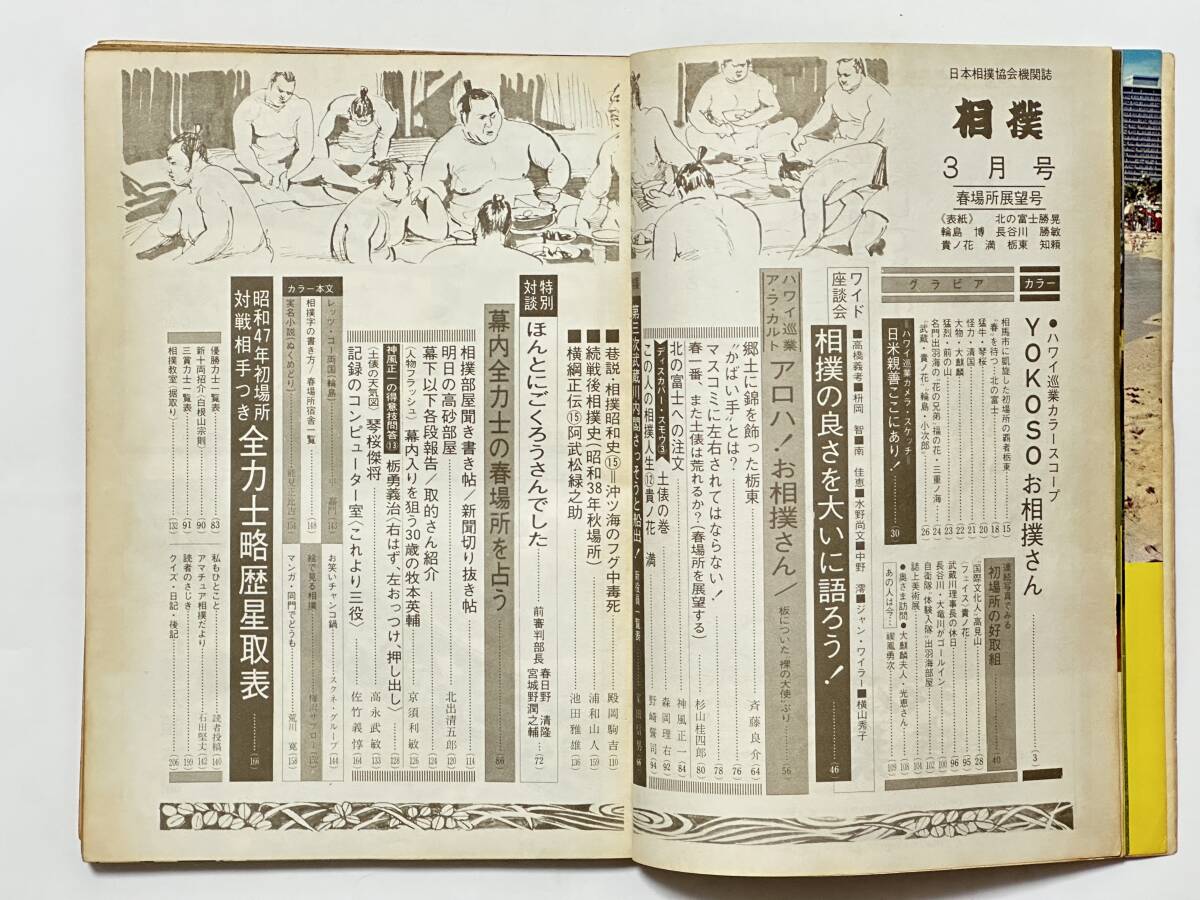 日本相撲協会機関誌
相撲
3月号
春場所展望号
《表紙》 北の富士勝晃
輪島 博 長谷川 勝敏
貴ノ花 満 栃東 知頼
カラー
●ハワイ巡業カラースコープ
YOKOSOお相撲さん 3
グラビア
相馬市に凱旋した初場所の覇者栃東 15
“春”を待つ・北の富士 18
猛牛・琴桜 20
怪力・清国 21
大物・大麒麟 22
猛烈・前の山 23
名門出羽海の“花の兄弟”福の花・三重ノ海 24
“武蔵”貴ノ花・輪島・小次郎 26
=ハワイ巡業カメラ・スケッチ=
日米親善ここにあり! 30
連続写真でみる
初場所の好取組 40
〈国際文化人〉高見山 28
〈フェイス〉貴ノ花 95
武蔵川理事長の休日 96
長谷川・大竜川がゴールイン 100
自衛隊“体験入隊”出羽海部屋 102
誌上美術展 104
●奥さま訪問●大麒麟夫人・光恵さん 108
あの人は今… 禊鳳勇次 109
ワイド座談会
相撲の良さを大いに語ろう! 46
■高橋義孝■枡岡 智■南 佳恵■水野尚文■中野 澪■ジャン・ワイラー■横山秀子
ハワイ巡業ア・ラ・カルト
アロハ!お相撲さん/ 板についた“裸の大使”ぶり 56
郷土に錦を飾った栃東 斉藤良介 64
“かばい手”とは? 76
マスコミに左右されてはならない! 78
春一番、また土俵は荒れるか?(春場所を展望する) 杉山桂四郎 80
北の富士への注文 神風正一 84
ディスカバー・スモウ③ 土俵の巻 森岡理右 92
この人の相撲人生⑫貴ノ花 満 野崎誓司 94
第三次武蔵川内閣さっそうと船出! 66
■巷説・相撲昭和史⑮=沖ツ海のフグ中毒死 殿岡駒吉 110
■続戦後相撲史(昭和38年秋場所) 浦和山人 159
■横綱正伝⑮阿武松緑之助 池田雅雄 136
特別対談
ほんとにごくろうさんでした 前審判部長 春日野 清隆 宮城野潤之輔 72
幕内全力士の春場所を占う 86
相撲部屋聞き書き帖/新聞切り抜き帖 114
明日の高砂部屋 北出清五郎 120
幕下以下各段報告/取的さん紹介 124
〈人物フラッシュ〉幕内入りを狙う30歳の牧本英輔 京須利敏 126
神風正一の得意技問答⑬ 栃勇義治〈右はず、左おっつけ、押し出し〉 128
〈土俵の天気図〉琴桜傑将 高永武敏 133
記録のコンピューター室〈これより三役〉 佐竹義惇 164
カラー本文
レッツ・ゴー両国(輪島) 143
相撲字の書き方/春場所宿舎一覧 148
実名小説(ぬくめどり) 能見正比古 154
お笑いチャンコ鍋 スクネ・グループ 144
絵で見る相撲 152
マンガ・同門でどうも 荒川 寛 158
昭和47年初場所
対戦相手つき
全力士略歴星取表 166
優勝力士一覧表 83
新十両紹介(白根山宗則) 90
三賞力士一覧表 91
相撲教室(掘取り) 132
私もひとこと 読者投稿 140
アマチュア相撲だより 石田堅丈 142
読者のさじき 199
クイズ・日記・後記 206